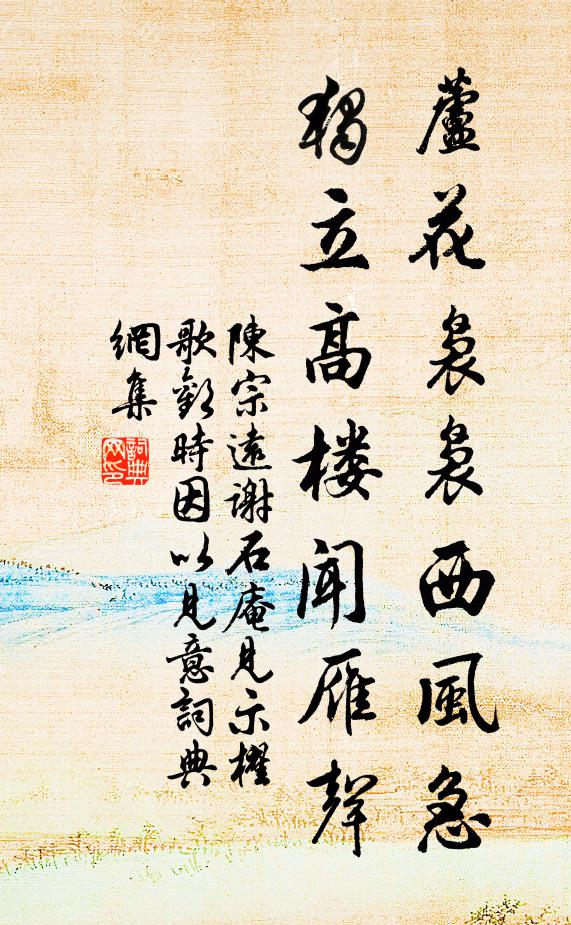 蘆花裊裊西風急
獨立高樓聞雁聲
陳宗遠謝石庵見示櫂
歌數時因以見意詞典
網集
詞典
网印